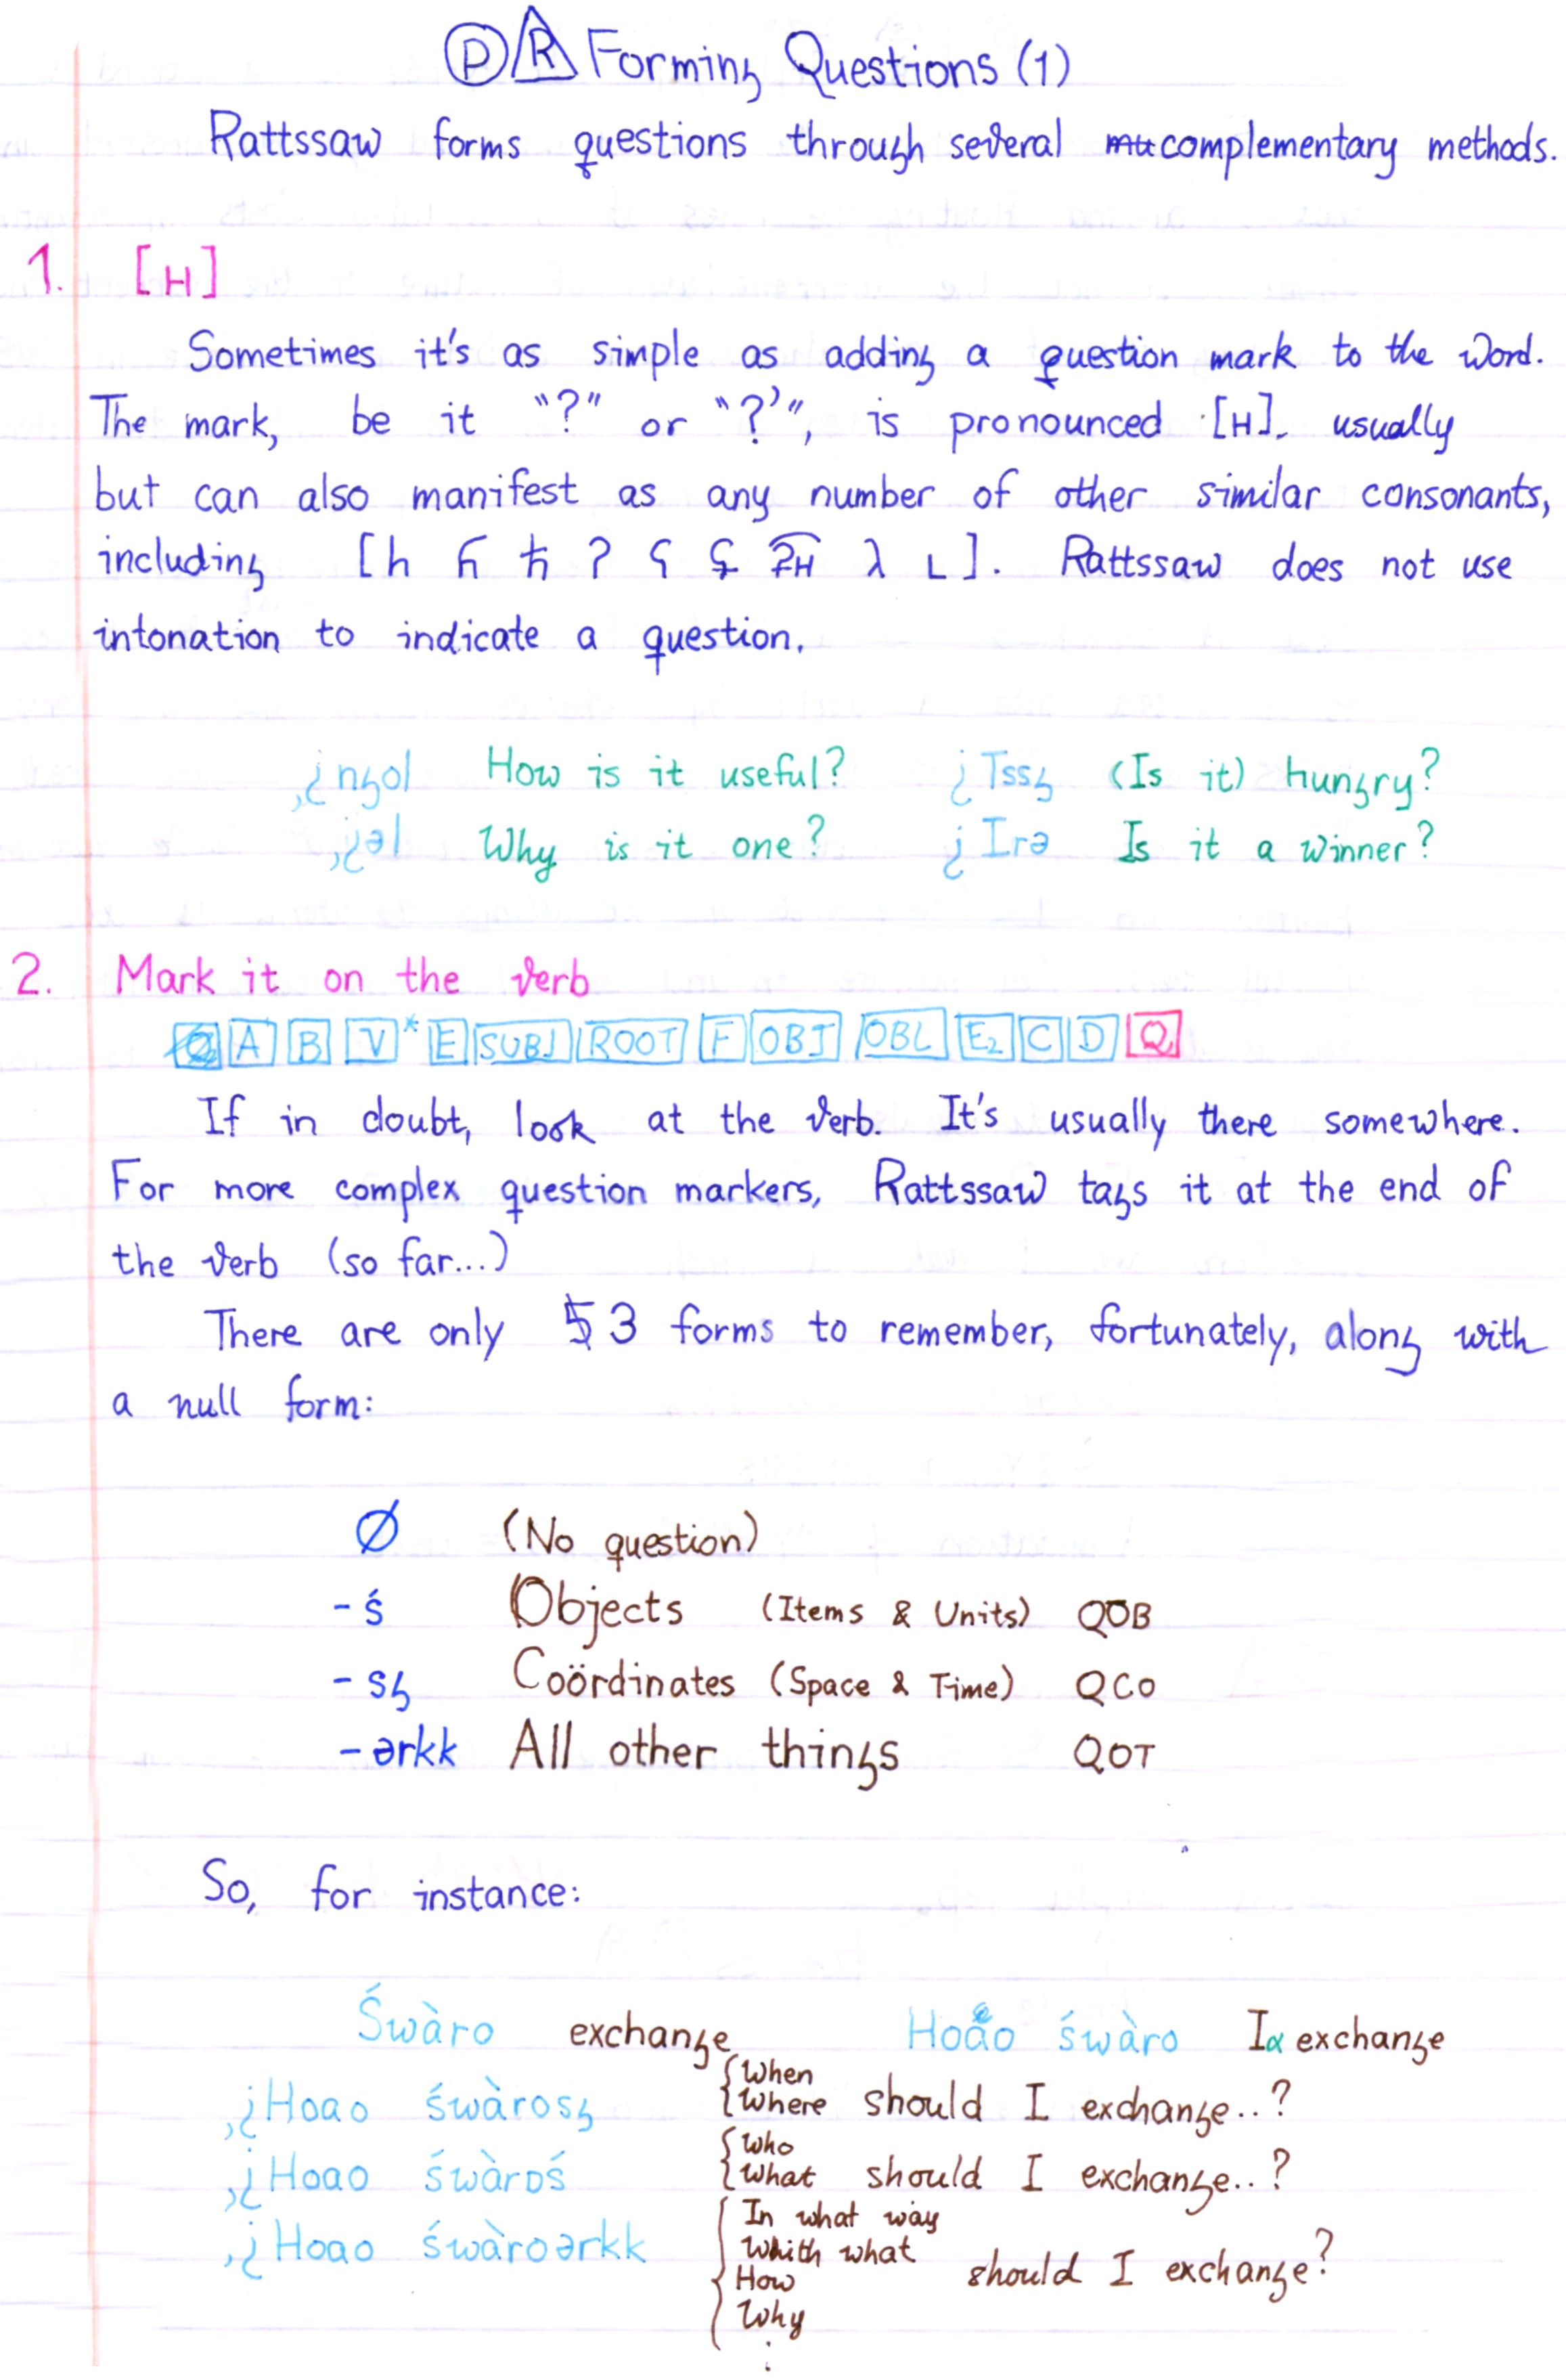 Ⓟ R Forming Questions (1)
Rattssaw forms questions through several complementary methods.
1. [ʜ]
Sometimes it's as simple as adding a question mark to the word.
The mark, be it "?" or "?'", is pronounced [ʜ], usually
but can also manifest as any number of other similar consonants,
including [h ɦ ħ ʔ ʕ]. Rattssaw does not use
intonation to indicate a question.
,¿ngol How is it useful? ¿Tssg (Is it) hungry?
,¿əl Why is it one? ¿Irə Is it a winner?
2. Mark it on the verb
A B V* E SUBJ ROOT F OBJ OBL E₂ C D Q
If in doubt, look at the verb. It's usually there somewhere.
For more complex question markers, Rattssaw tags it at the end of
the verb (so far...)
There are only 3 forms to remember, fortunately, along with
a null form:
Ø (No question)
-ś Objects (Items & Units) QOB
-sg Coördinates (Space & Time) QCO
-ərkk All other things QOT
So, for instance:
Śwàro exchange Hoao śwàro Iα exchange
,¿Hoao śwàrosg {When Where should I exchange..?
,¿Hoao śwàroś {Who What should I exchange..?
,¿Hoao śwàroərkk {In what way
With what
How
Why
⋮
should I exchange?